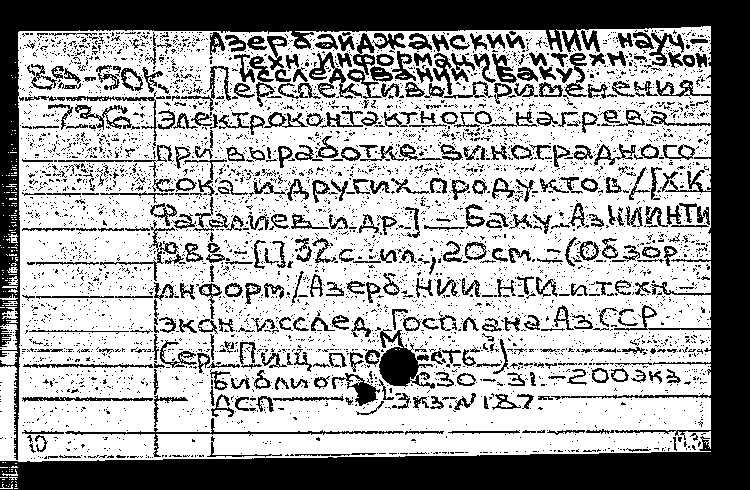 Азербайджанский НИИ науч.-
техн. информации и техн.-экон.
исследований (Баку).
89-50К Перспективы применения
73G электроконтактного нагрева
при выработке виноградного
сока и других продуктов / [Х.К.
Фаталиев и др.] - Баку: АзНИИНТИ
1988.-[1], 32 с.: ил.; 20 см. - (Обзор.
информ. / Азерб. НИИ НТИ и техн.-
экон. исслед. Госплана АзССР.
Сер. "Пищ. пром-сть").
Библиогр.: с.30-31. - 200 экз.
ДСП. Экз. N 187.
10